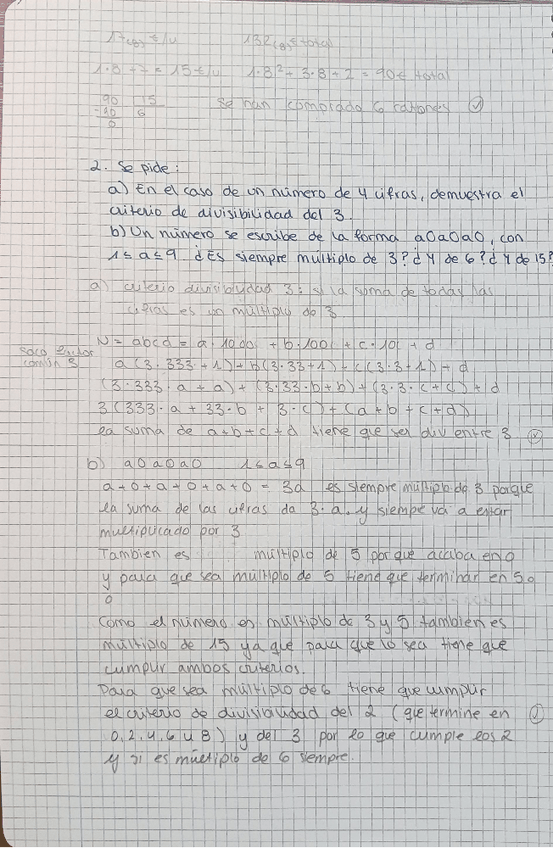 17(8) €/u 132(8) € total
1·8+7 = 15€/u 1·8²+3·8+2 = 90€ total
90 15
-90 6
0
se han comprado 6 ratones
2. Se pide:
a) En el caso de un número de 4 cifras, demuestra el
criterio de divisibilidad del 3.
b) Un número se escribe de la forma a0a0a0, con
1≤a≤9 ¿Es siempre múltiplo de 3? ¿Y de 6? ¿Y de 15?
a) criterio divisibilidad 3: si la suma de todas las
cifras es un múltiplo de 3
N = abcd = a·1000 + b·100 + c·10 + d
saco factor
común 3
a(3·333+1) + b(3·33+1) + c(3·3+1) + d
(3·333·a + a) + (3·33·b + b) + (3·3·c + c) + d
3(333·a + 33·b + 3·c) + (a+b+c+d)
la suma de a+b+c+d tiene que ser div entre 3
b) a0a0a0 1≤a≤9
a+0+a+0+a+0 = 3a es siempre múltiplo de 3 porque
la suma de las cifras da 3·a, y siempe va a estar
multiplicado por 3
Tambien es múltiplo de 5 porque acaba en 0
y para que sea múltiplo de 5 tiene que terminar en 5 o
0
Como el número es múltiplo de 3 y 5 tambien es
múltiplo de 15 ya que para que lo sea tiene que
cumplir ambos criterios.
Para que sea múltiplo de 6 tiene que cumplir
el criterio de divisibilidad del 2 (que termine en
0,2,4,6 u 8) y del 3 por lo que cumple los 2
y si es múltiplo de 6 siempre.